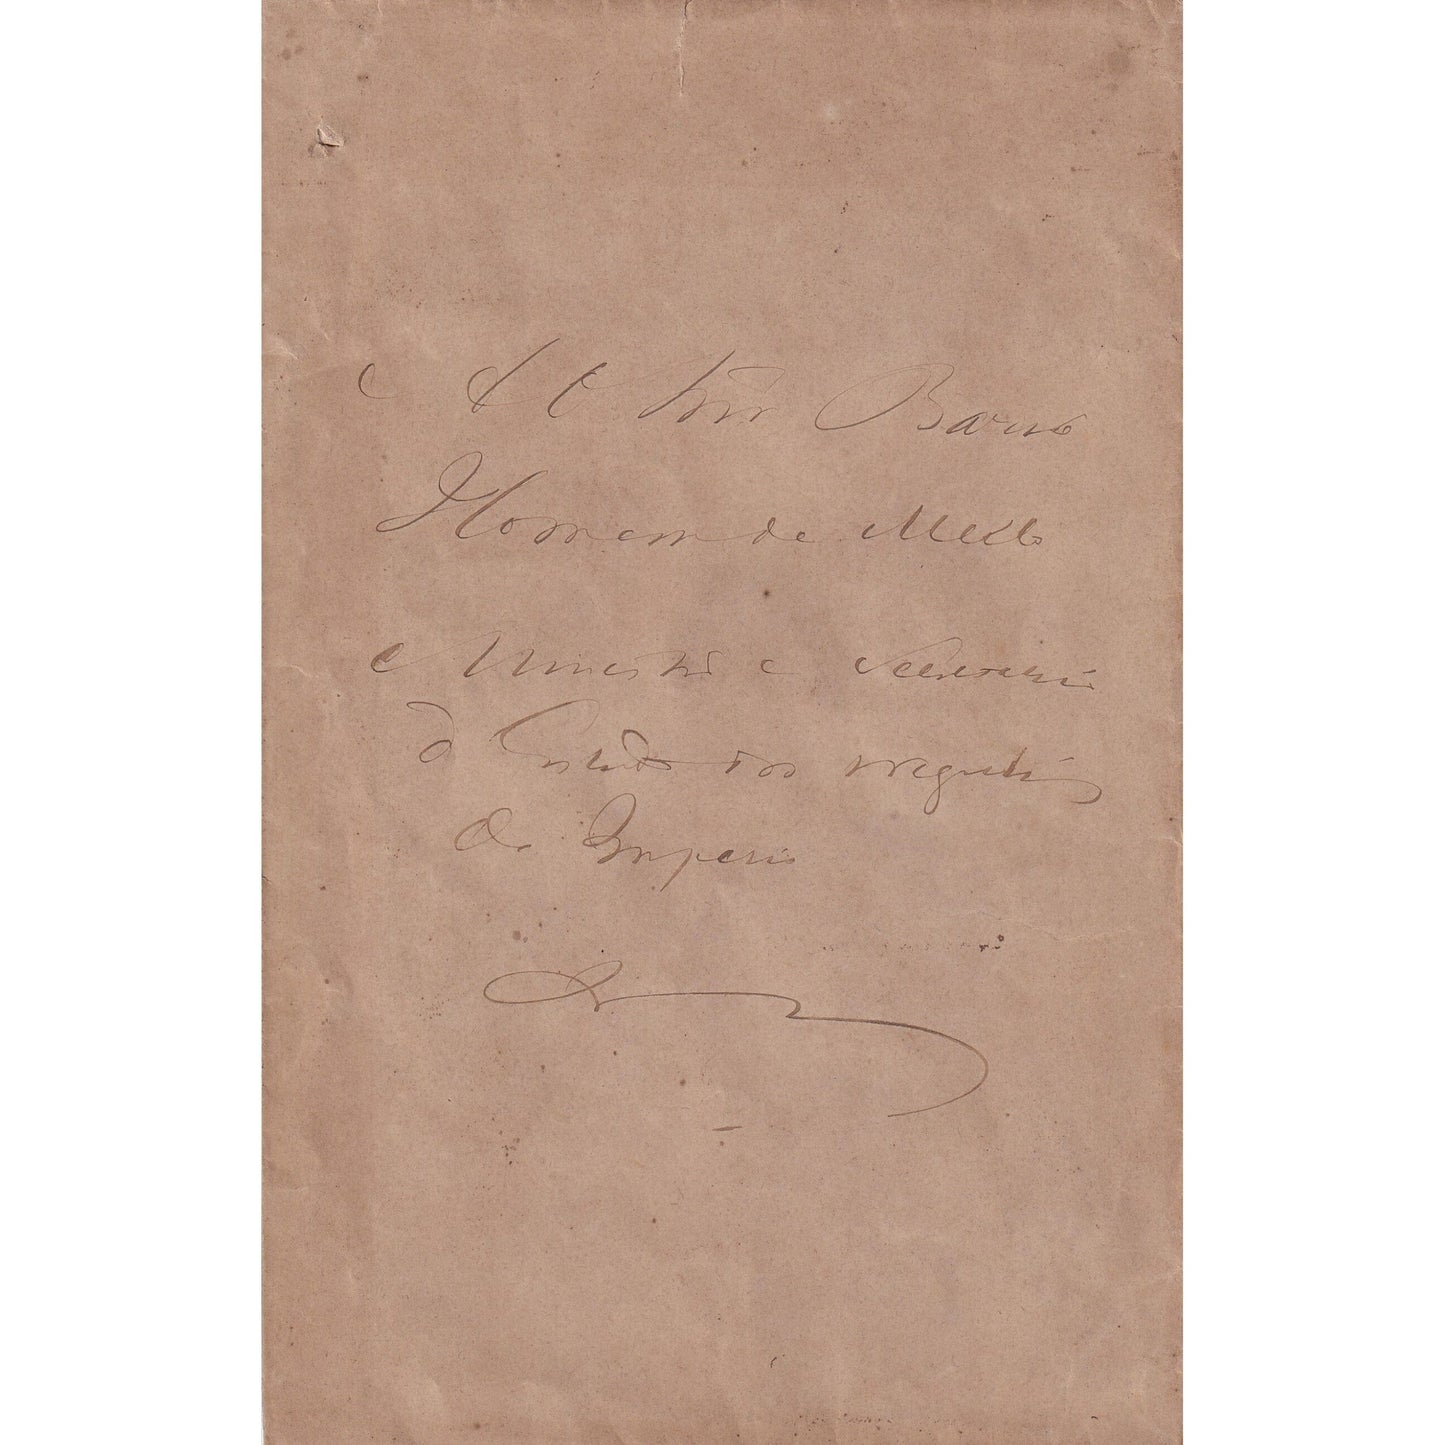 A O Snr Barão
Homem de Mello
Ministro e Secretario
d Estado dos negocios
do Imperio